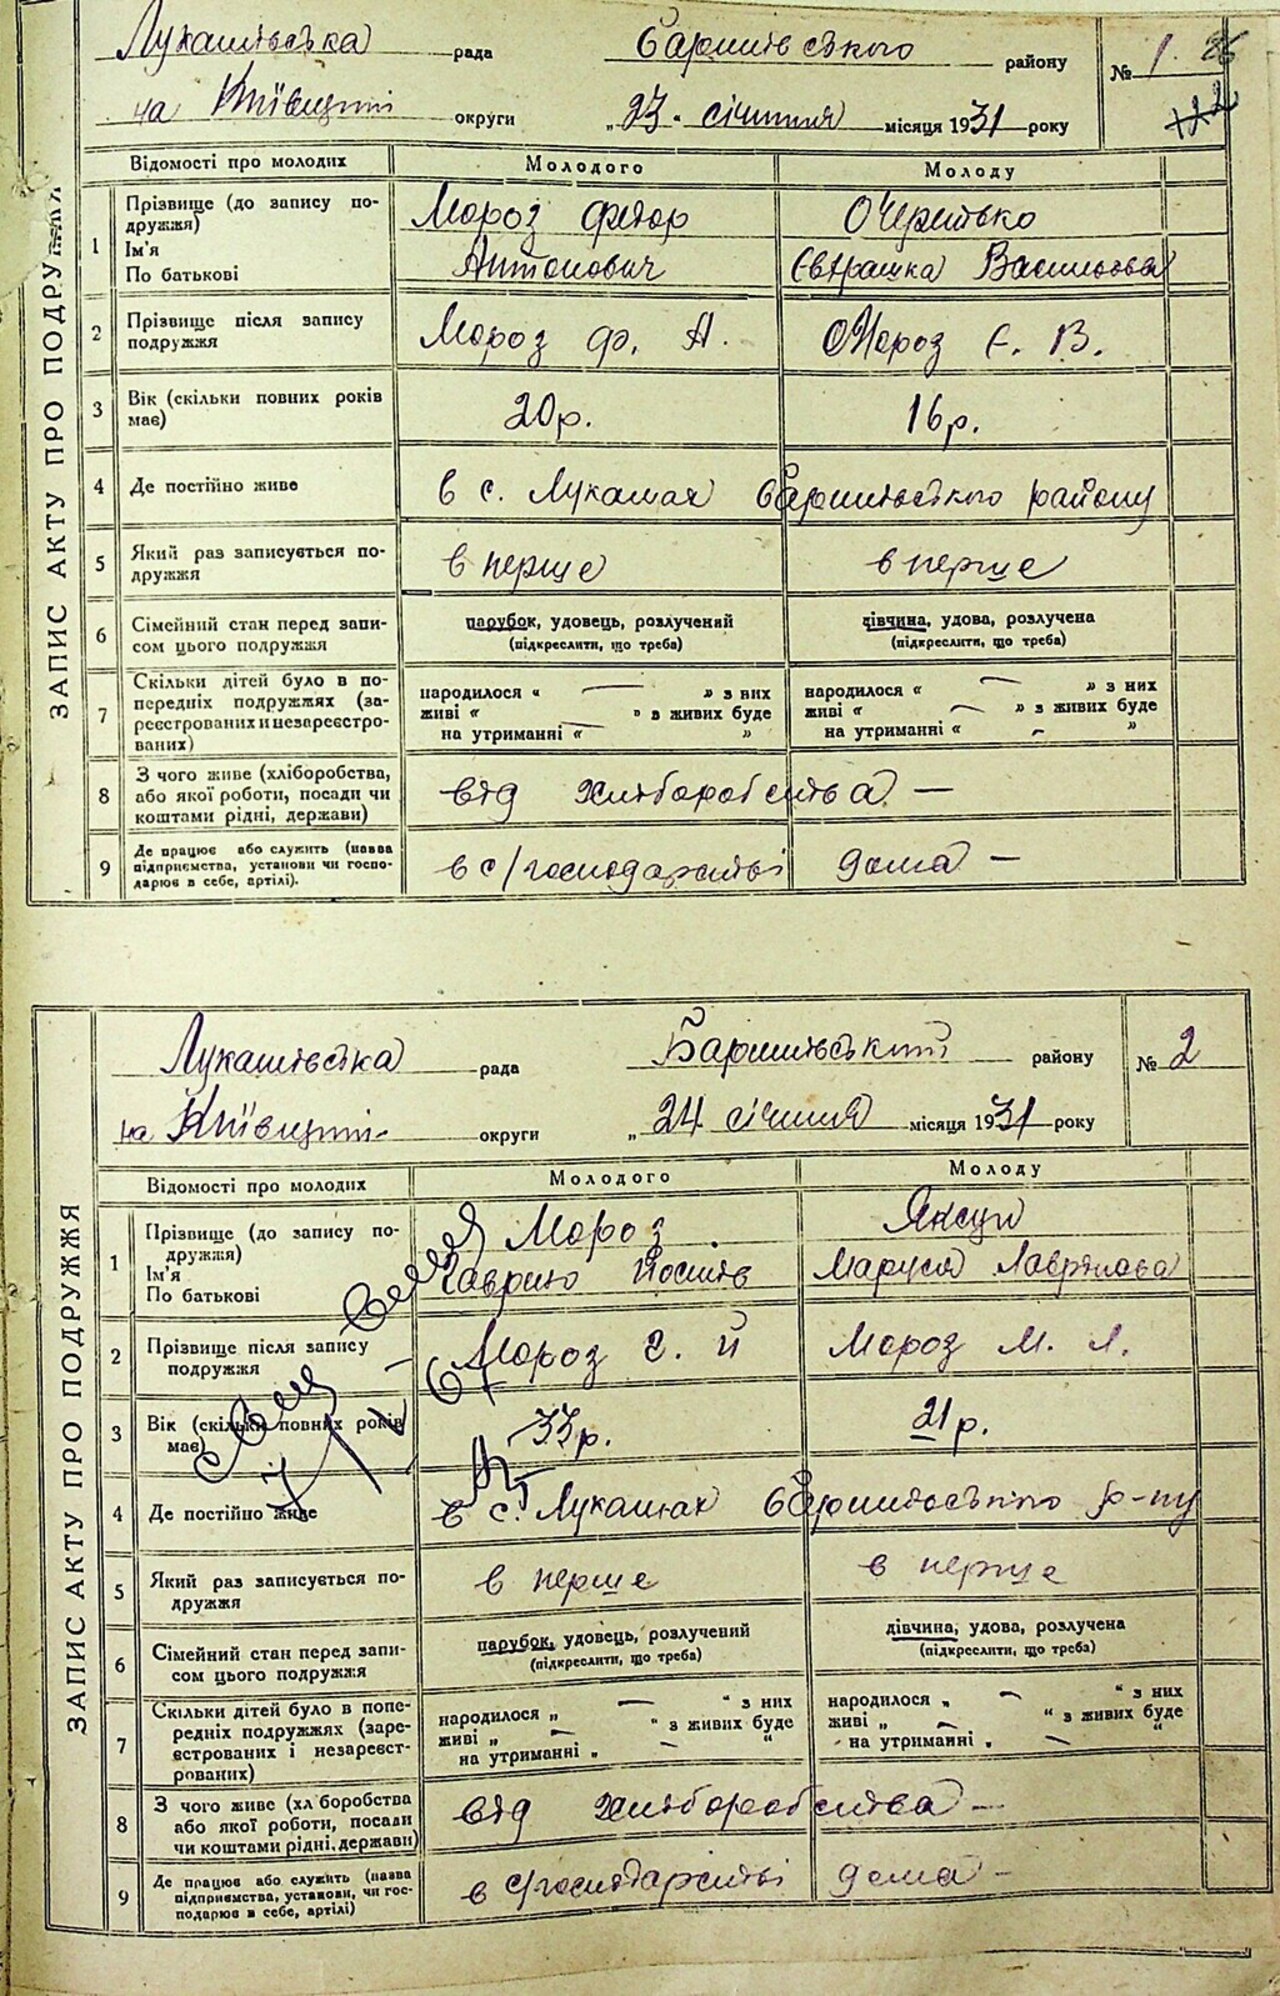 Лукашівська рада Баришівського району № 1
на Київщині округи „23" січння місяця 1931 року
ЗАПИС АКТУ ПРО ПОДРУЖЖЯ
Відомості про молодих Молодого Молоду
1 Прізвище (до запису по-
дружжя)
Ім'я
По батькові
Мороз Федор
Антонович
Очеритько
Євдрашка Василівна
2 Прізвище після запису
подружжя
Мороз Ф. А. Мороз Є. В.
3 Вік (скільки повних років
має)
20р. 16р.
4 Де постійно живе в с. Лукашах Баришівського району
5 Який раз записується по-
дружжя
в перше в перше
6 Сімейний стан перед запи-
сом цього подружжя
парубок, удовець, розлучений
(підкреслити, що треба)
дівчина, удова, розлучена
(підкреслити, що треба)
7 Скільки дітей було в по-
передніх подружжях (за-
реєстрованих и незареєстро-
ваних)
народилося « — » з них
живі « » в живих буде
на утриманні « — »
народилося « — » з них
живі « — » з живих буде
на утриманні « — »
8 З чого живе (хліборобства,
або якої роботи, посади чи
коштами рідні, держави)
від хліборобства —
9 Де працює або служить (назва
підприємства, установи чи госпо-
дарює в себе, артілі).
в с/господарстві дома —
Лукашівська рада Баришівський району № 2
на Київщині округи „24 січння місяця 1931 року
ЗАПИС АКТУ ПРО ПОДРУЖЖЯ
Відомості про молодих Молодого Молоду
1 Прізвище (до запису по-
дружжя)
Ім'я
По батькові
Мороз
Гаврило Йосипів
Яксун
Маруся Лаврінова
2 Прізвище після запису
подружжя
Мороз Г. Й Мороз М. Л.
3 Вік (скільки повних років
має)
33р. 21р.
4 Де постійно живе в с. Лукашах Баришівського р-ну
5 Який раз записується по-
дружжя
в перше в перше
6 Сімейний стан перед запи-
сом цього подружжя
парубок, удовець, розлучений
(підкреслити, що треба)
дівчина, удова, розлучена
(підкреслити, що треба)
7 Скільки дітей було в попе-
редніх подружжях (заре-
єстрованих і незареєст-
рованих)
народилося „ — “ з них
живі „ — “ з живих буде
на утриманні „ — “
народилося „ — “ з них
живі „ — “ з живих буде
на утриманні „ — “
8 З чого живе (хл боробства
або якої роботи, посади
чи коштами рідні, держави)
від хліборобства —
9 Де працює або служить (назва
підприємства, установи, чи гос-
подарює в себе, артілі)
в с/господарстві дома —